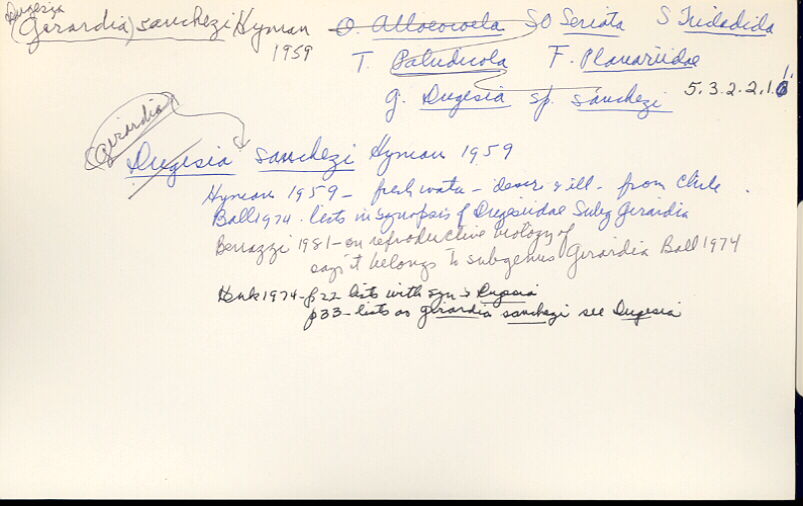 Dugesia
(Girardia) sanchezi Hyman
1959
O. Alloeocoela SO Seriata S Tricladida
T. Paludicola F. Planariidae
g. Dugesia sp. sanchezi 5.3.2.2.1.1.
Girardia
Dugesia sanchezi Hyman 1959
Hyman 1959 - freshwater - descr & ill. from Chile.
Ball 1974. lists in synopsis of Dugesiidae Subg Girardia
Benazzi 1981 - on reproductive biology of
says it belongs to subgenus Girardia Ball 1974
1974 - p22 lists with syn Dugesia
p33 - lists as girardia sanchezi see Dugesia